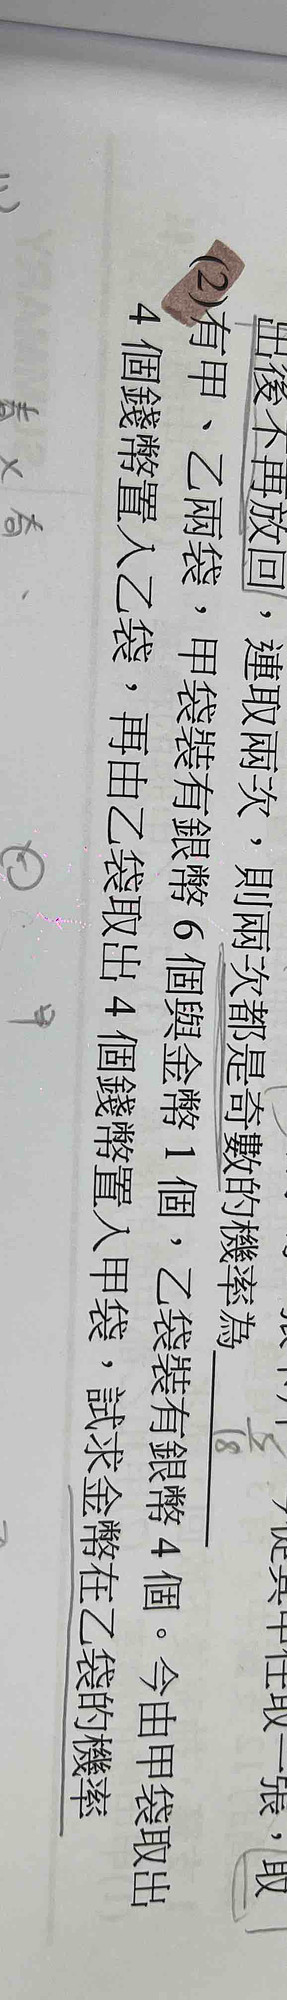 出後不再放回，連取兩次，則兩次都是奇數的機率為
(2)有甲、乙兩袋，甲袋裝有銀幣 6 個與金幣 1 個，乙袋裝有銀幣 4 個。今由甲袋取出
4 個錢幣置入乙袋，再由乙袋取出 4 個錢幣置入甲袋，試求金幣在乙袋的機率